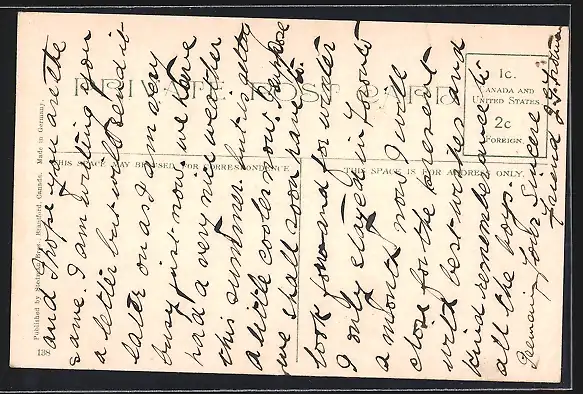 PRIVATE POST CARD
1c.
CANADA AND
UNITED STATES
2c
FOREIGN.
THIS SPACE MAY BE USED FOR CORRESPONDENCE
THIS SPACE IS FOR ADDRESS ONLY.
Published by Stedman Bros., Brantford, Canada. Made in Germany.
138
and I hope you are the
same. I am writing you
a letter but will send it
later on as I am very
busy just now. we have
had a very nice weather
this summer. but is getting
a little cooler now. I suppose
we shall soon have to
look forward for winter
I only stayed in
a month. now I will
close for the present
with best wishes and
kind remembrances to
all the boys.
Remaing Your Sincere
friend